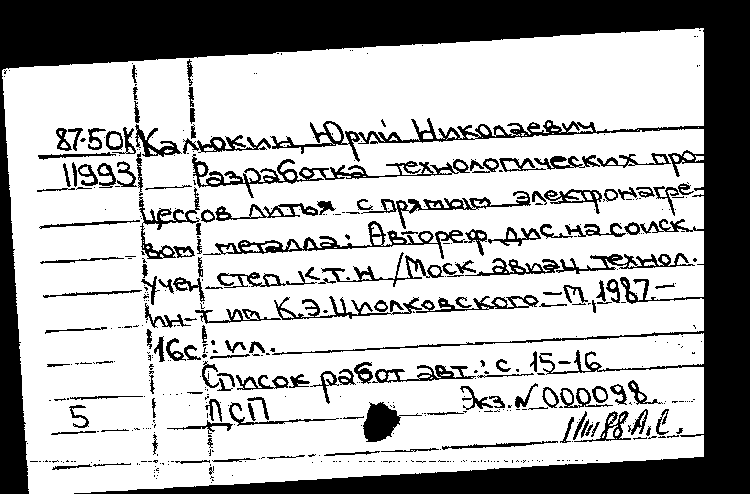 87-50К Калюкин, Юрий Николаевич
11993 Разработка технологических про-
цессов литья с прямым электронагре-
вом металла: Автореф. дис. на соиск.
учен степ. к.т.н. /Моск. авиац. технол.
ин-т им. К.Э.Циолковского.-М, 1987.-
16с.: ил.
Список работ авт.: с. 15-16
5 ДСП Экз.N 000098.
1/III 88. А.С.